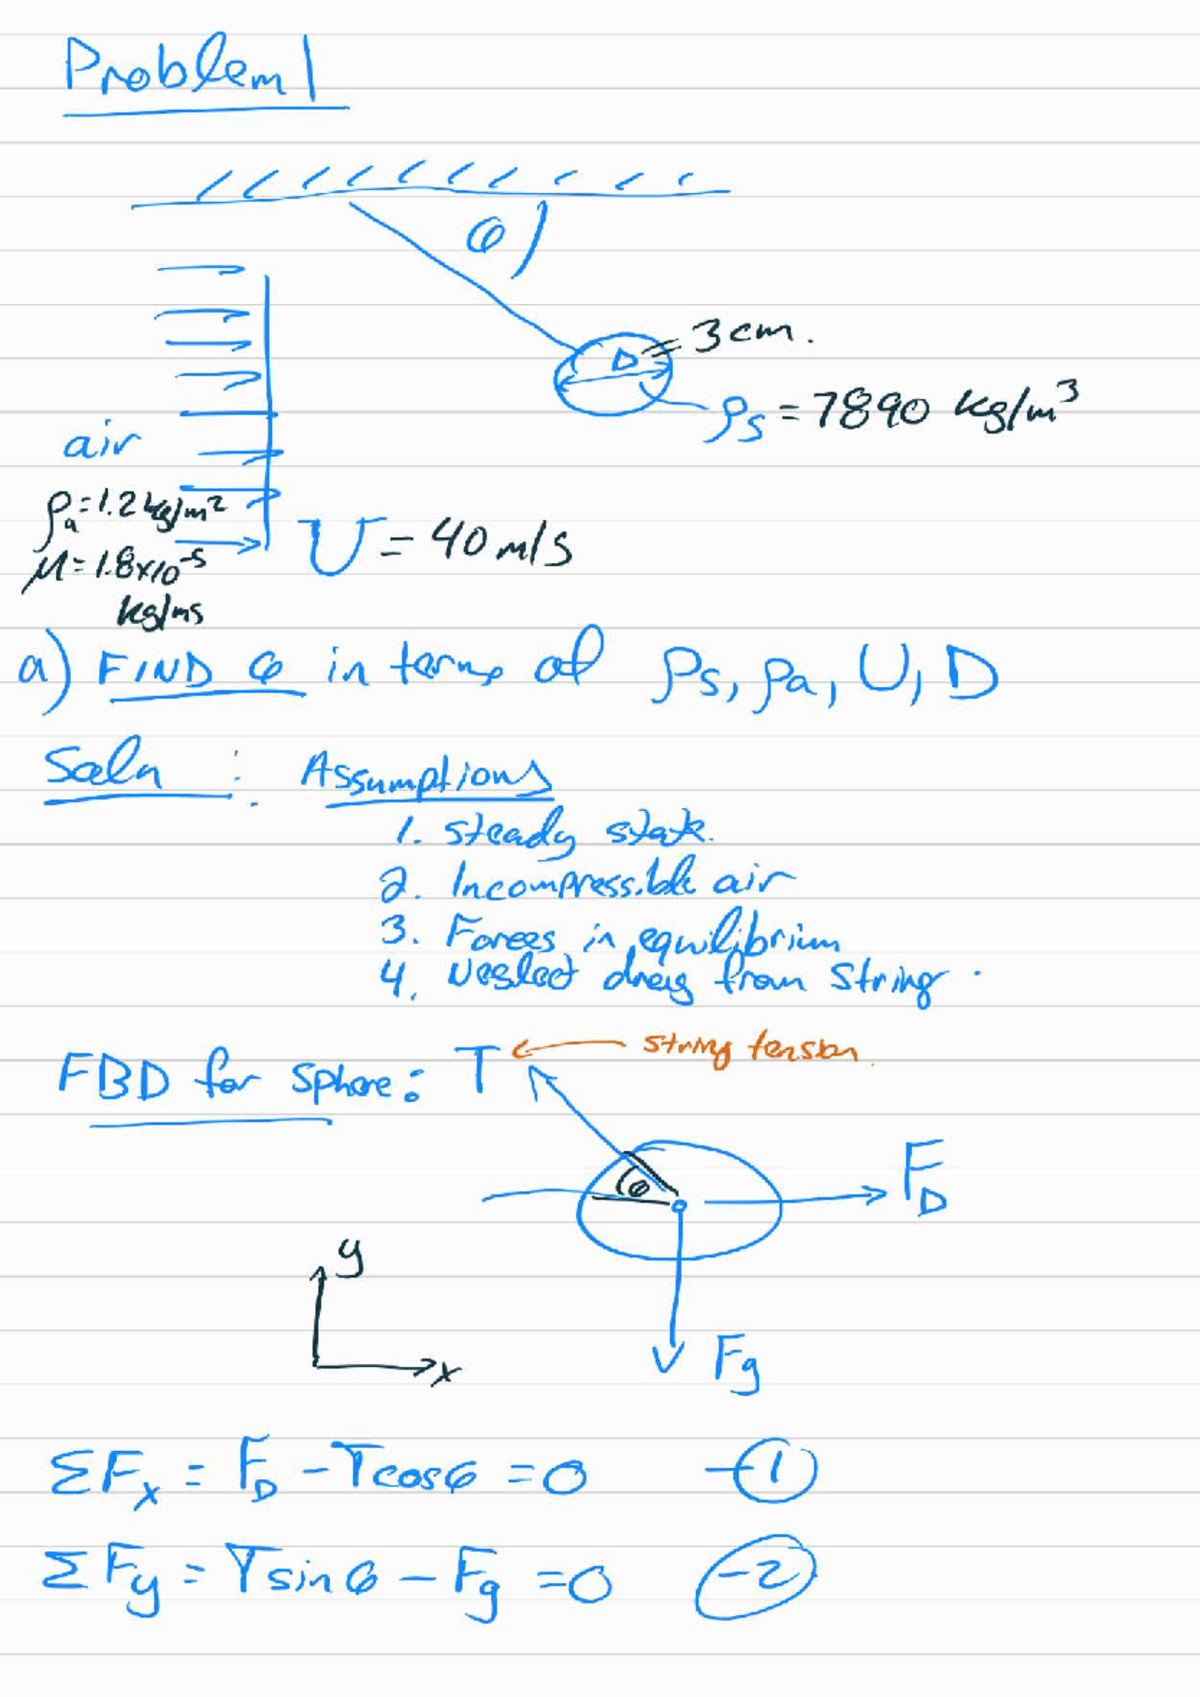 Problem 1
θ
D = 3 cm.
ρs = 7890 kg/m³
air
ρa = 1.2 kg/m²
U = 40 m/s
μ = 1.8x10⁻⁵
kg/ms
a) FIND θ in terms of ρs, ρa, U, D
Soln : Assumptions
1. steady state.
2. Incompressible air
3. Forces in equilibrium
4. Neglect drag from string.
FBD for sphere: T ← string tension.
θ
F_D
y
x
Fg
ΣFx = F_D - Tcosθ = 0 -①
ΣFy = Tsinθ - Fg = 0 -②